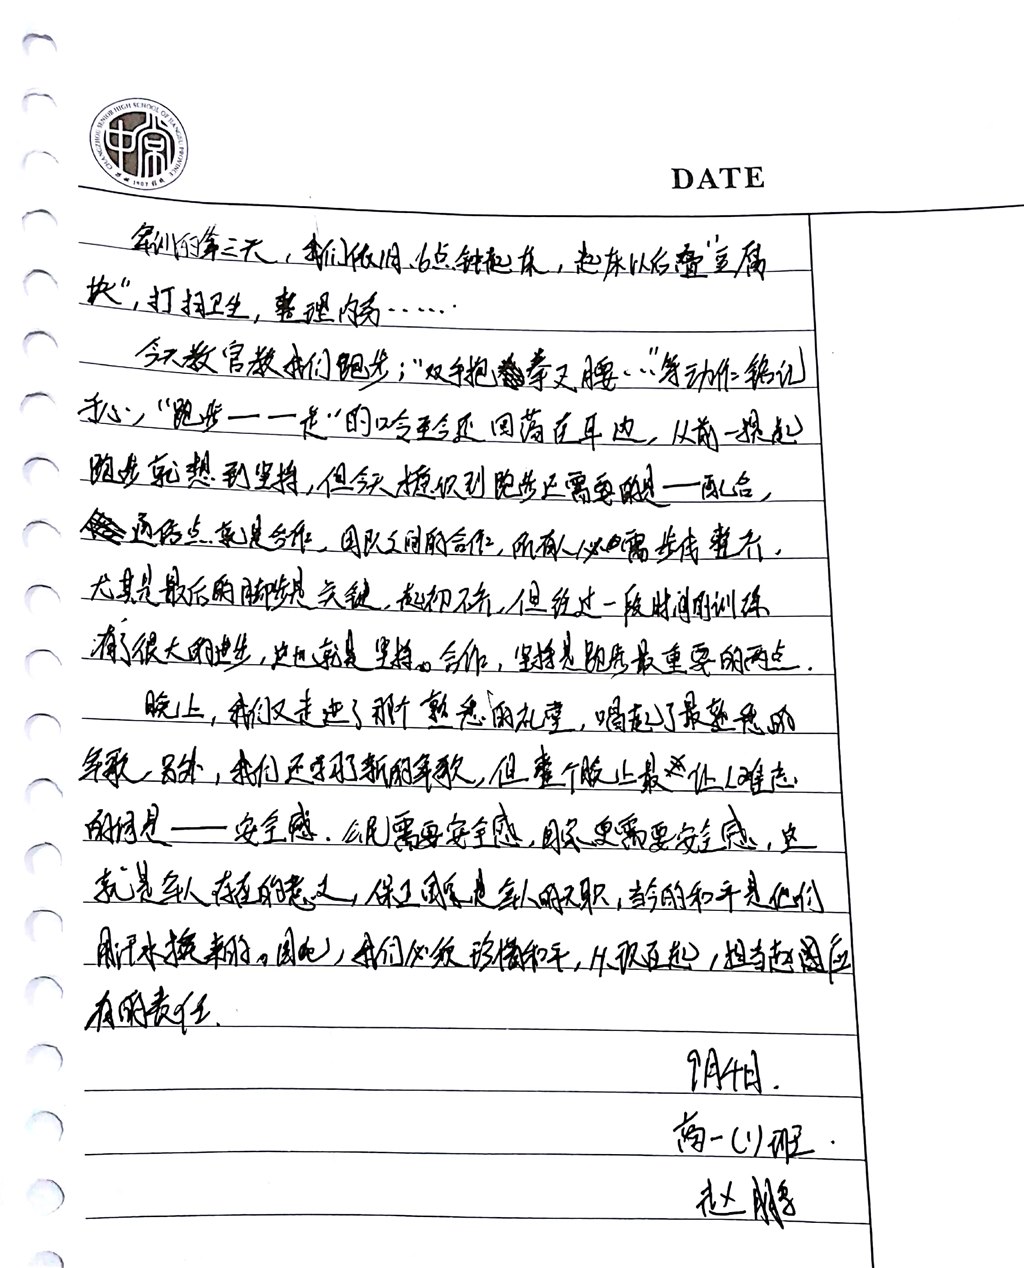 CHANGZHOU SENIOR HIGH SCHOOL OF JIANGSU PROVINCE
1907
DATE
军训的第三天，我们依旧6点钟起床，起床以后叠“豆腐
块”，打扫卫生，整理内务……
今天教官教我们跑步；“双手抱拳叉腰…”等动作铭记
于心，“跑步——走”的口令至今还回荡在耳边，从前一提起
跑步就想到坚持，但今天才意识到跑步还需要的是——配合，
通俗点就是合作，团队之间的合作，所有人必需步伐整齐，
尤其是最后的脚步是关键，起初不齐，但经过一段时间的训练
有了很大的进步，这也就是坚持。合作，坚持是跑步最重要的两点．
晚上，我们又走进了那个熟悉的礼堂，唱起了最熟悉的
军歌，另外，我们还学习了新的军歌，但整个晚上最让人难忘
的词是——安全感．公民需要安全感，国家更需要安全感，这
就是军人存在的意义，保卫国家是军人的天职，当今的和平是他们
用汗水换来的。因此，我们必须珍惜和平，从现在起，担当起国应
有的责任．
9月4日．
高一(1)班．
赵鹏